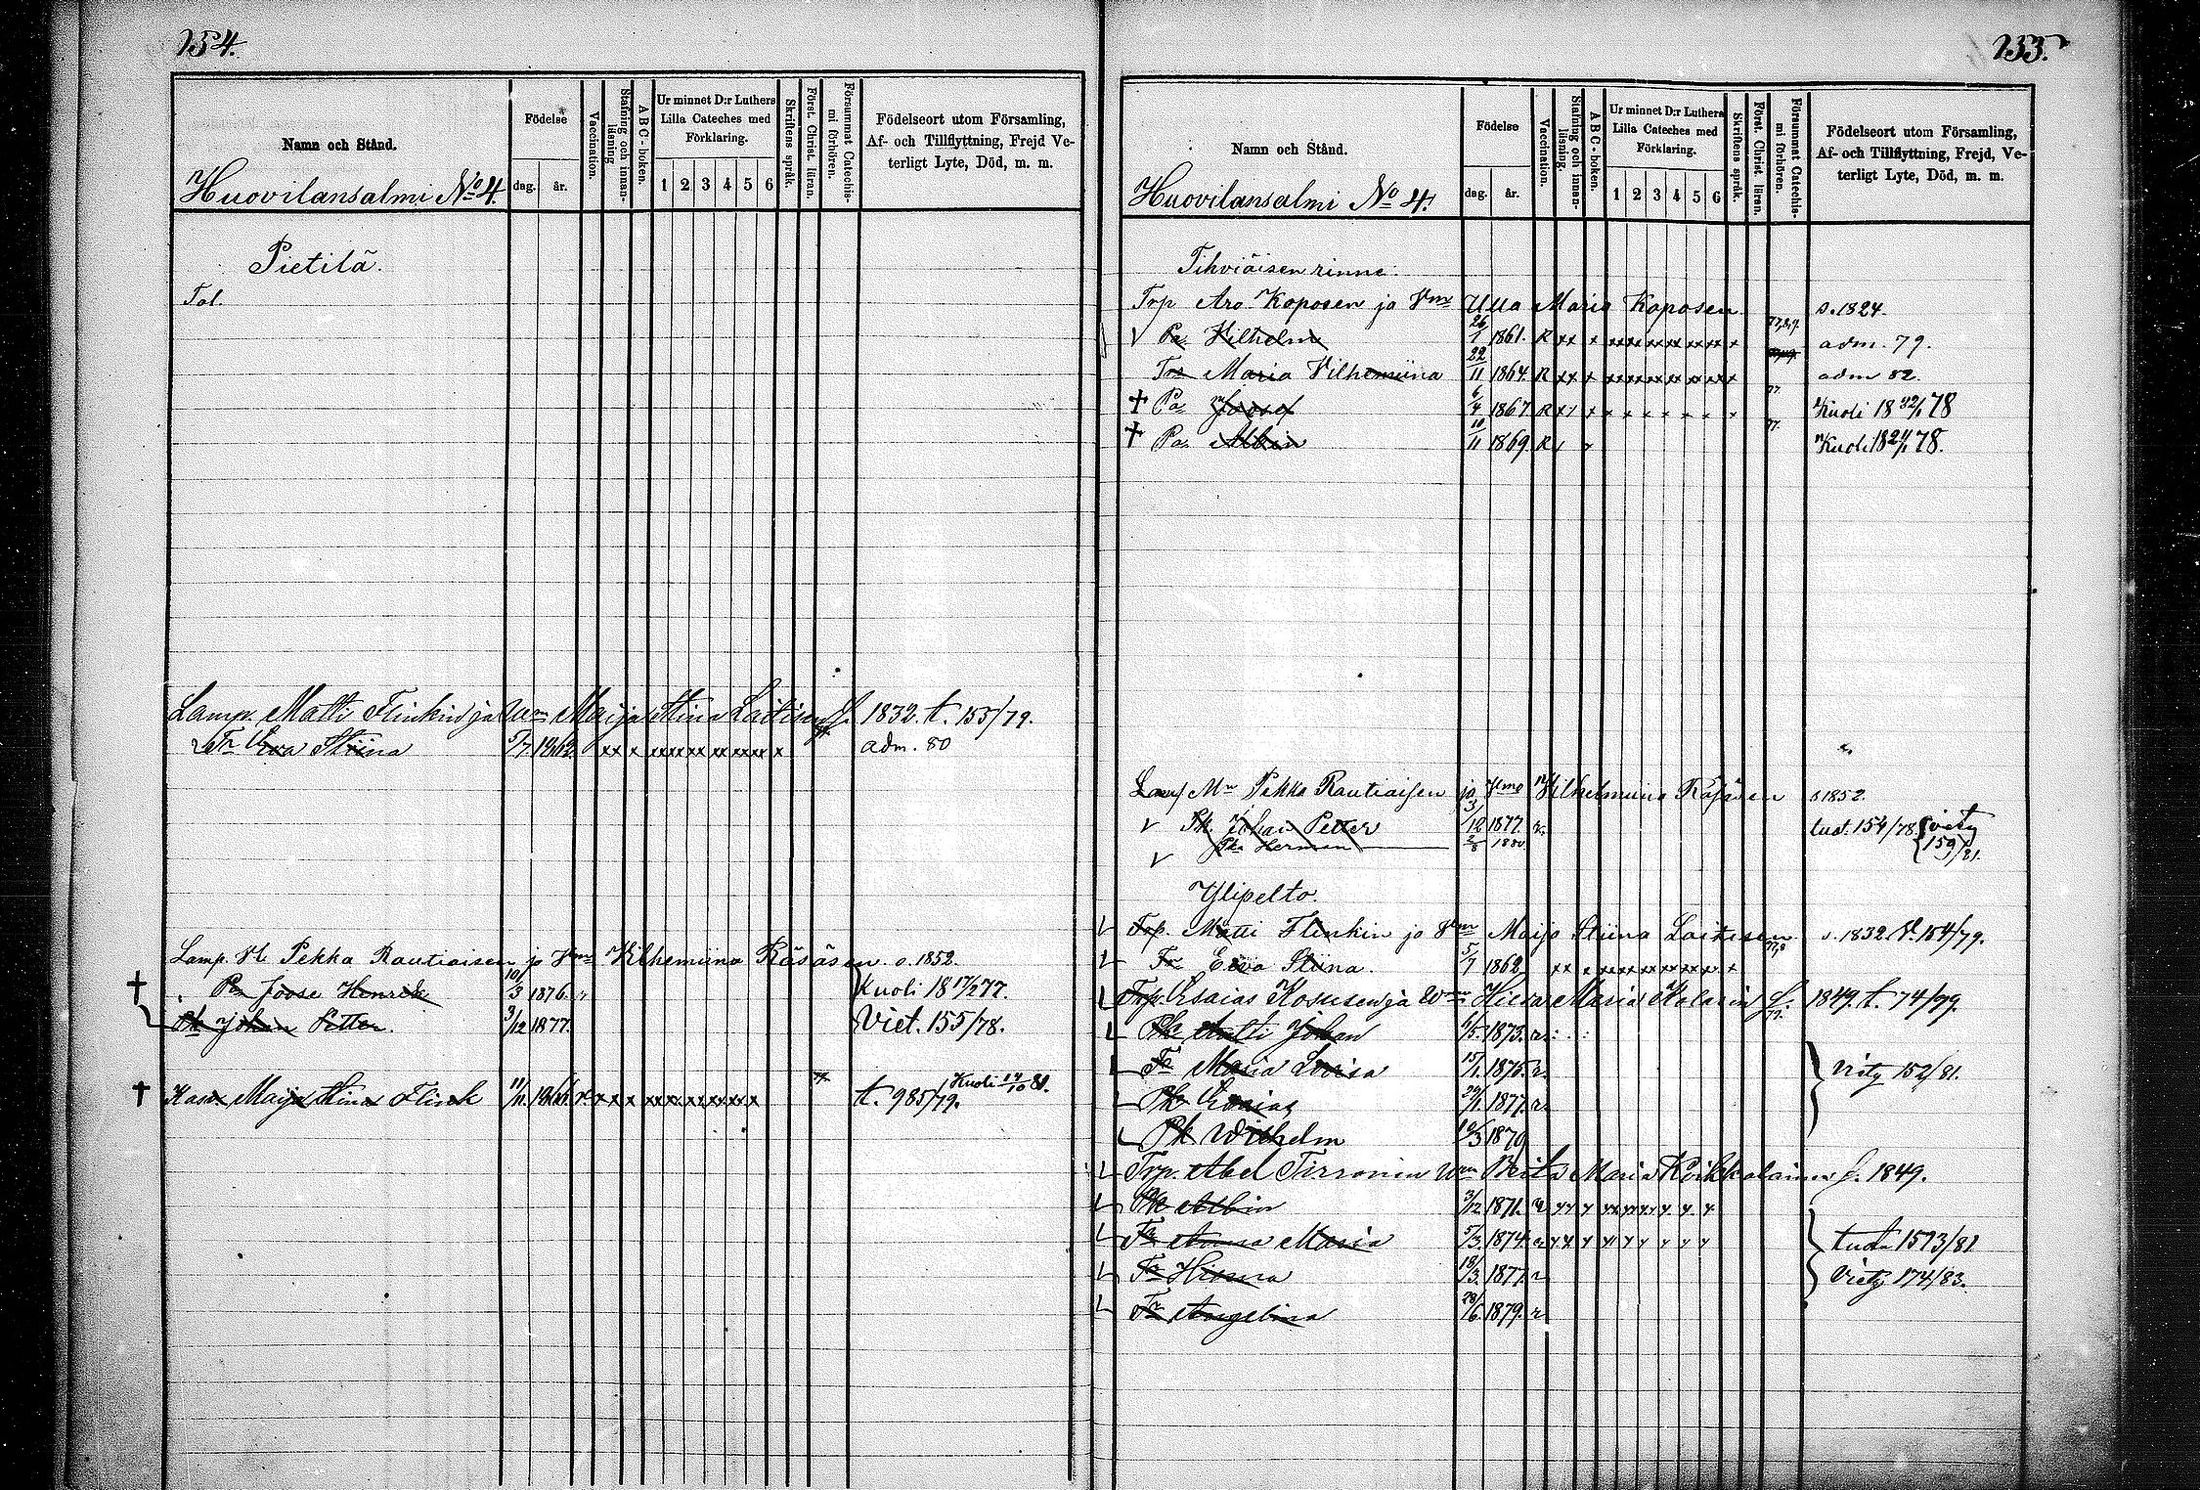 154.
Namn och Stånd.
Födelse
dag. år.
Vaccination.
Stafning och innanläsning
A B C-boken.
Ur minnet D:r Luthers Lilla Cateches med Förklaring.
1 2 3 4 5 6
Skriftens språk.
Först. Christ. läran.
Försummat Catechismi förhören.
Födelseort utom Församling, Af- och Tillflyttning, Frejd Veterligt Lyte, Död, m. m.
Huovilansalmi No 4.
Pietilä.
Tal.
Lamp. Matti Flinkin ja Wm Maija Stina Laitisen f. 1832. t. 155/79.
Tr Eva Stiina 5/7 1862. xx x xx xx xx xx x x adm. 80
Lamp. M Pekka Rautiaisen ja Vm Vilhemiina Räsäsen s. 1852.
† Pa Joose Henrik 10/3 1876. r Kuoli 18 17/2 77.
Pk Johan Petter. 3/12 1877. Viet. 155/78.
† Kasv. Maija Stina Flink 11/11 1866 r. x x x xx xx x x x x t. 985/79. Kuoli 14/10 81.
155.
Namn och Stånd.
Födelse
dag. år.
Vaccination.
Stafning och innanläsning.
A B C-boken.
Ur minnet D:r Luthers Lilla Cateches med Förklaring.
1 2 3 4 5 6
Skriftens språk.
Först. Christ. läran.
Försummat Catechismi förhören.
Födelseort utom Församling, Af- och Tillflyttning, Frejd, Veterligt Lyte, Död, m. m.
Huovilansalmi No 4.
Tihviäisen rinne.
Trp Aro Koposen ja Vm Ulla Maria Koposen s. 1824.
Pa Vilhelm 26/1 1861. R xx x xx xx xx x x xx x adm. 79.
Tr Maria Vilhemiina 22/11 1864 R xx x xx xx xx x x xx x adm 82.
† Pa Joosef 6/4 1867. R 77. Kuoli 18 /1 78
† Pa Albin 10/11 1869. R 77. Kuoli 18 /1 78.
Lamp Mn Pekka Rautiaisen ja Vmo Vilhelmiina Räsäsen s 1852.
Pk. Johan Petter 3/12 1877. r. tust. 154/78. viety 159/81.
Pka Herman 2/8 1880.
Ylipelto.
Trp. Matti Flinkin ja Vm Maija Stiina Laitisen s. 1832. V. 154/79.
Tr Eeva Stiina. 5/7 1862 xx x xx xx xx x x x x
Trp. Esaias Kosusen ja Wm Hilda Maria Kolarin f. 1849. t. 74/79.
Pk Antti Johan 6/5. 1873. r.
Tr Maria Lovisa 15/1. 1875. r. viety 152/81.
Pk Esaias 29/1. 1877. r.
Pk Wilhelm 10/3 1879
Trp. Abel Tirronin Wm Brita Maria Koikkalainen f. 1849.
Pk Albin 3/12 1871. r
Tr Anna Maria 5/3. 1874. r tust. 1573/81
Tr Hilma 18/3. 1877. r viety 174/83.
Tr Angelina 28/6. 1879. r